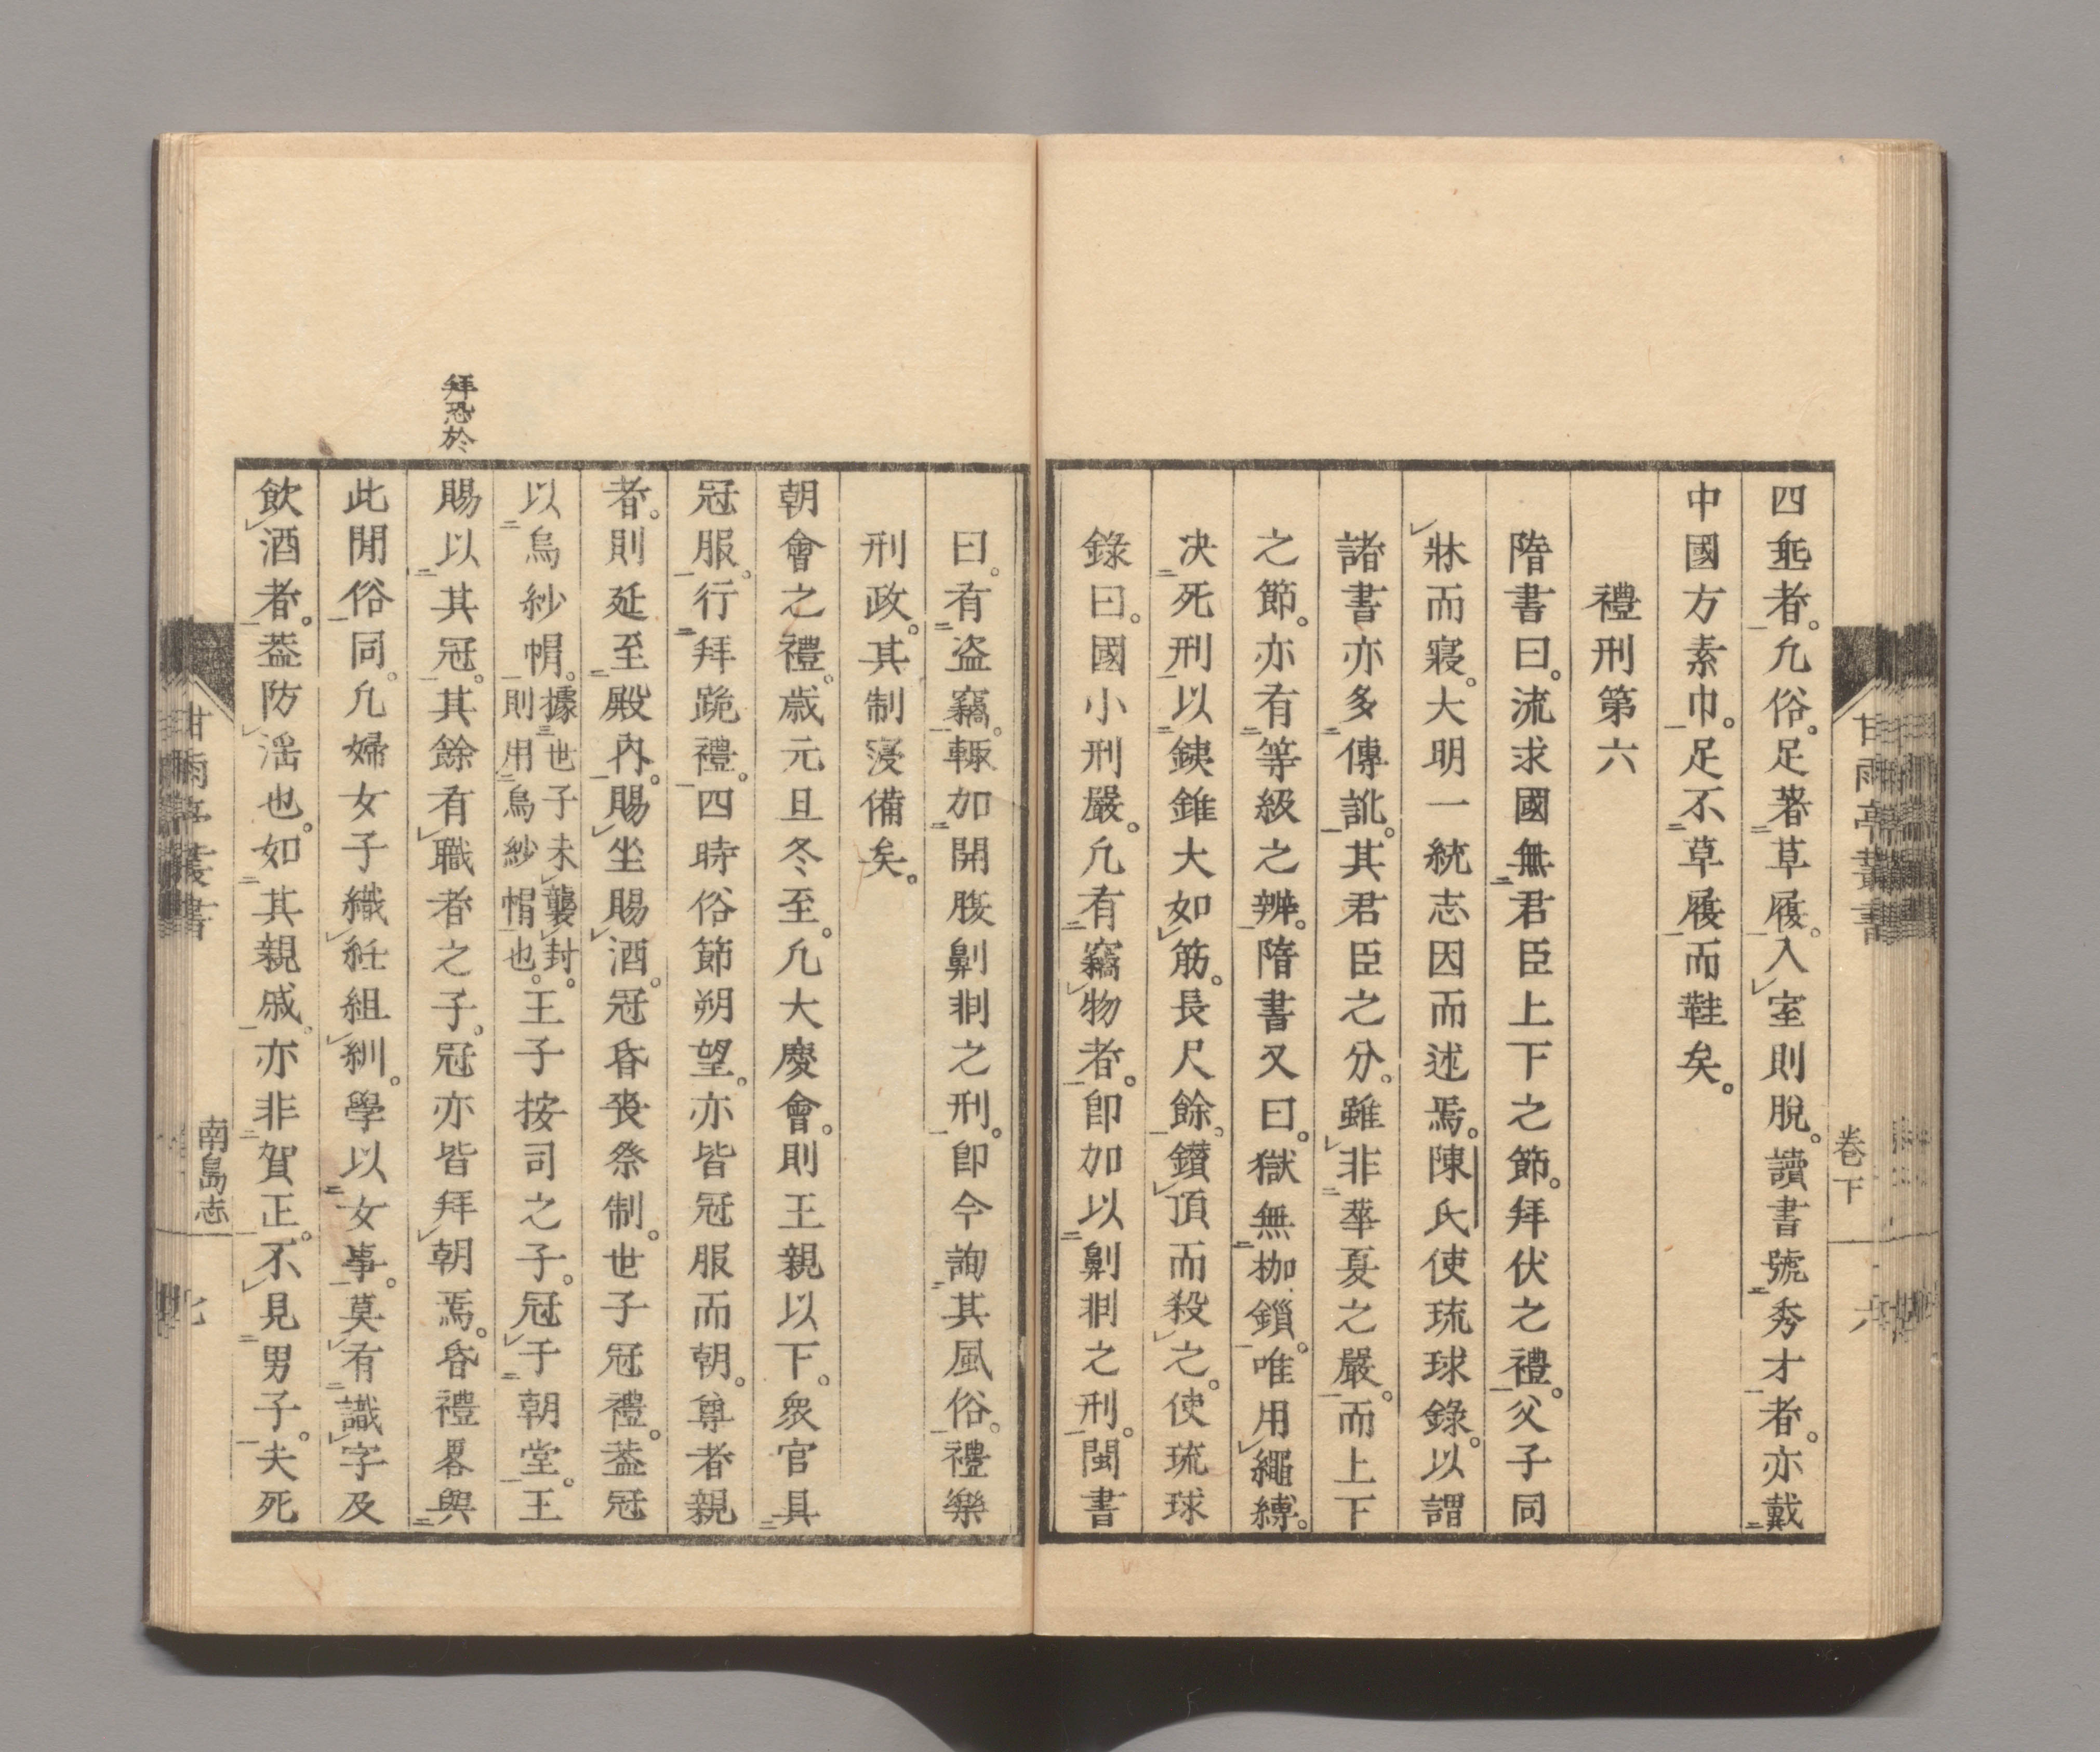 四垂者。凢俗。足著草履。入室則脫。讀書號秀才者。亦戴
中國方素巾。足不草履而鞋矣。
禮刑第六
隋書曰。流求國無君臣上下之節。拜伏之禮。父子同
牀而寢。大明一統志因而述焉。陳氏使琉球錄。以謂
諸書亦多傳訛。其君臣之分。雖非華夏之嚴。而上下
之節。亦有等級之辨。隋書又曰。獄無枷鎖。唯用繩縛。
决死刑以鐵錐大如筋。長尺餘。鑽頂而殺之。使琉球
錄曰。國小刑嚴。凢有竊物者。卽加以劓剕之刑。閩書
卷下
甘雨亭叢書
曰。有盜竊。輙加開腹劓剕之刑。卽今詢其風俗。禮樂
刑政。其制寖備矣。
朝會之禮。歲元旦冬至。凢大慶會。則王親以下。衆官具
冠服。行拜跪禮。四時俗節朔望。亦皆冠服而朝。尊者親
者。則延至殿內。賜坐賜酒。冠昏喪祭制。世子冠禮。葢冠
以烏紗帽。據世子未襲封。則用烏紗帽也。王子按司之子。冠于朝堂。王
拜恐於
賜以其冠。其餘有職者之子。冠亦皆拜朝焉。昏禮畧與
此閒俗同。凢婦女子織紝組紃。學以女事。莫有識字及
飲酒者。葢防淫也。如其親戚。亦非賀正。不見男子。夫死
甘雨亭叢書
南島志